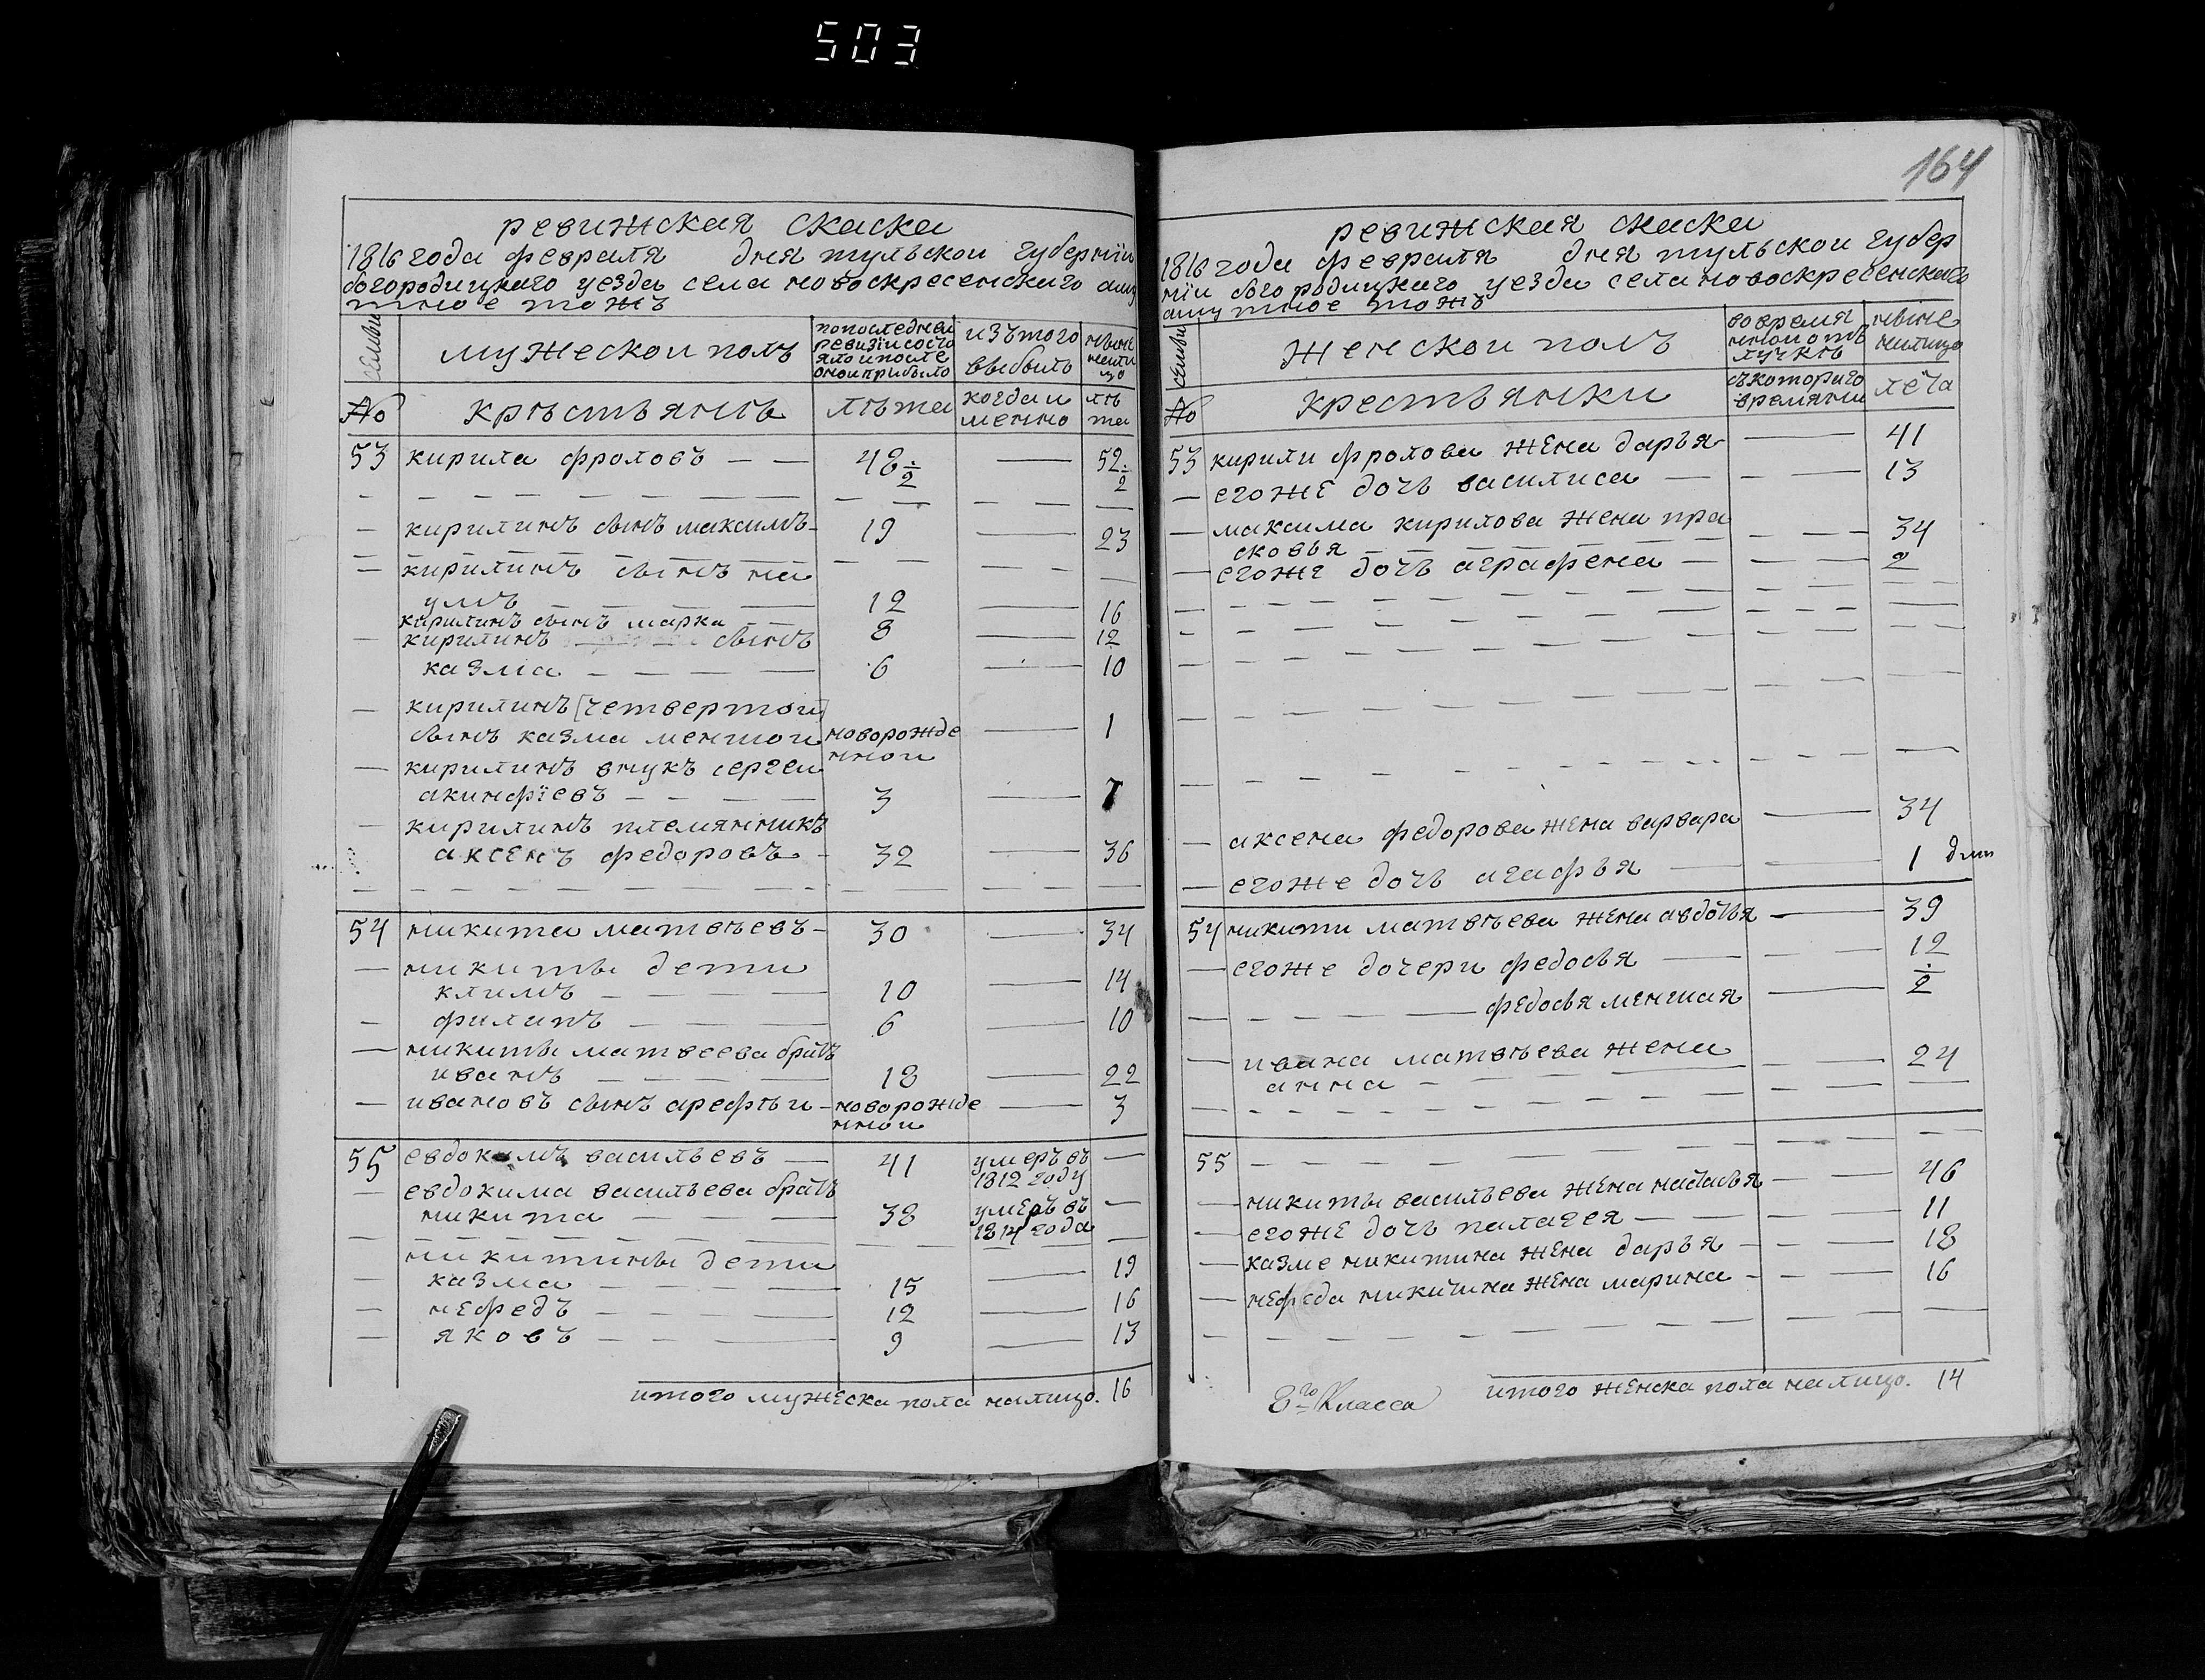 503
164
ревижская скаска
1816 года февраля дня тульской губернїи
богородицкаго уезда села новоскресенскаго
тное тожъ
мужеской полъ
по последней
ревизїи состо
яло и после
оной прибыло
изъ того
выбыло
ныне
нали
цо
№
крѣстьянѣ
лѣта
когда и
менно
лѣ
та
53 кирила фроловъ 48 ½ 52 ½
кирилинъ сынъ максимъ 19 23
кирилинъ сынъ на
умъ 12 16
кирилинъ сынъ марка 8 12
кирилинъ сынъ
казма 6 10
кирилинъ [четвертой]
сынъ казма меншой новорожде
нной 1
кирилинъ внукъ сергей
акинфїевъ 3 7
кирилинъ племянникъ
аксенъ федоровъ 32 36
54 никита матвѣевъ 30 34
никиты дети
климъ 10 14
филипъ 6 10
никиты матвеева братъ
иванъ 18 22
ивановъ сынъ арефѣи новорожде
нной 3
55 евдокимъ васильевъ 41 умеръ въ
1812 году
евдокима васильева братъ
никита 38 умеръ въ
1814 года
никитины дети
казма 15 19
нефедъ 12 16
яковъ 9 13
итого мужеска пола налицо. 16
ревижская скаска
1816 года февраля дня тульской губер
нїи богородицкаго уезда села новоскресенскаго
тное тожъ
женской полъ
во время
ныне
налицо
№
крестьянки
съ котораго
времяни
лета
53 кирили фролова жена дарья 41
егоже дочь василиса 13
максима кирилова жена пра
сковья 34
егоже дочь аграфена 2
аксена федорова жена варвара 34
егоже дочь агафья 1 дни
54 никити матвѣева жена авдотья 39
егоже дочери федосья 12
федосья меншая ½
ивана матвѣева жена
анна 24
55
никиты васильева жена настасья 46
егоже дочь палагея 11
казме никитина жена дарья 18
нефеда никитина жена марина 16
итого женска пола налицо. 14
8го Класса